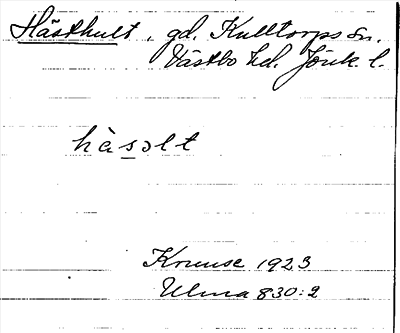 Hästhult, gd, Kulltorps sn.
Västbo hd. Jönk. l.
hàsəlt
Kruuse 1923
Ulma 830:2